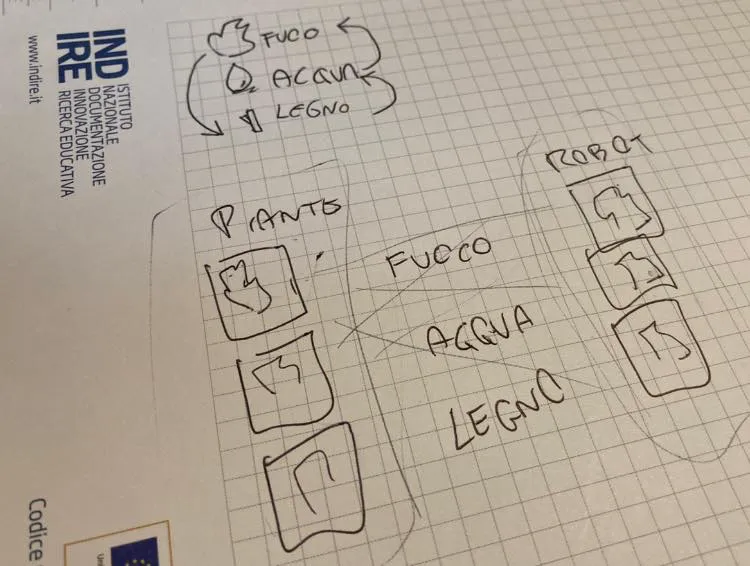 IND
IRE
ISTITUTO
NAZIONALE
DOCUMENTAZIONE
INNOVAZIONE
RICERCA EDUCATIVA
www.indire.it
FUCO
ACQUA
LEGNO
PIANTE
ROBOT
FUOCO
ACQUA
LEGNO
Codice